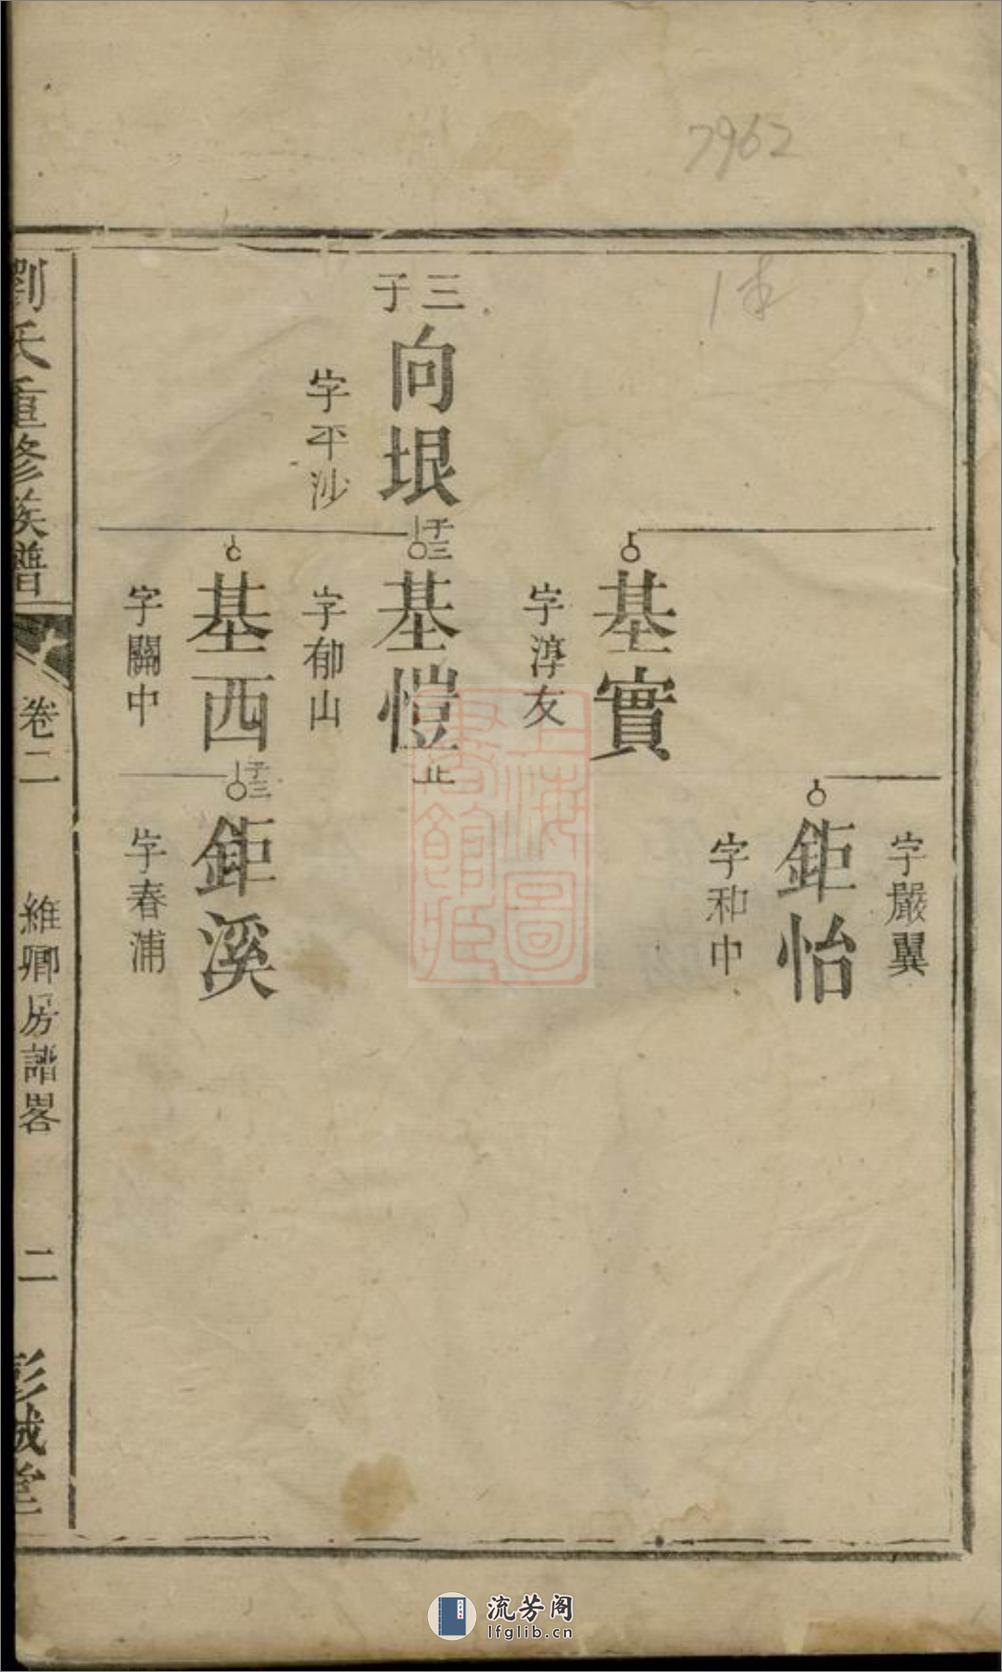 7962
1本
字嚴翼
鉅怡
字和中
基實
字淳友
三子
向垠
子三
字平沙
基愷
止
字郁山
基西
子三
字關中
鉅溪
字春浦
劉氏重修族譜
卷二
維卿房譜畧
二
彭城堂
上海圖書館藏
流芳阁
lfglib.cn